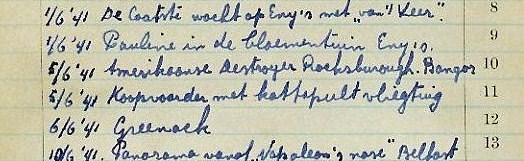 1/6 '41 De laatste wacht op Eny's met „van 't Veer". 8
1/6 '41 Pauline in de bloementuin Eny's. 9
5/6 '41 Amerikaanse Destroyer Rocksburough. Bangor 10
5/6 '41 Koopvaarder met kattapult vliegtuig 11
6/6 '41 Greenock 12
10/6 '41. Panorama vanaf „Napoleon's nose" Belfast 13